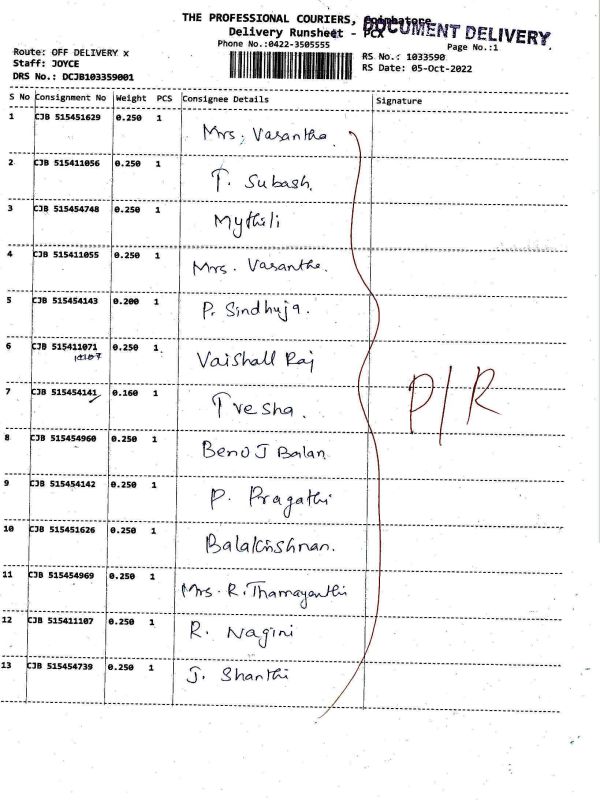 THE PROFESSIONAL COURIERS, Coimbatore
DOCUMENT DELIVERY
Delivery Runsheet - PCX
Phone No.:0422-3505555
Page No.:1
Route: OFF DELIVERY x
RS No.: 1033590
Staff: JOYCE
RS Date: 05-Oct-2022
DRS No.: DCJB103359001
S No Consignment No Weight PCS Consignee Details Signature
1 CJB 515451629 0.250 1 Mrs. Vasantha
2 CJB 515411056 0.250 1 T. Subash.
3 CJB 515454748 0.250 1 Mythili
4 CJB 515411055 0.250 1 Mrs. Vasantha.
5 CJB 515454143 0.200 1 P. Sindhuja.
6 CJB 515411071 0.250 1 Vaishali Raj
7 CJB 515454141 0.160 1 Tresha.
P/R
8 CJB 515454960 0.250 1 Beno J Balan
9 CJB 515454142 0.250 1 P. Pragathi
10 CJB 515451626 0.250 1 Balakrishnan.
11 CJB 515454969 0.250 1 Mrs. R. Thamayanthi
12 CJB 515411107 0.250 1 R. Nagini
13 CJB 515454739 0.250 1 J. Shanthi